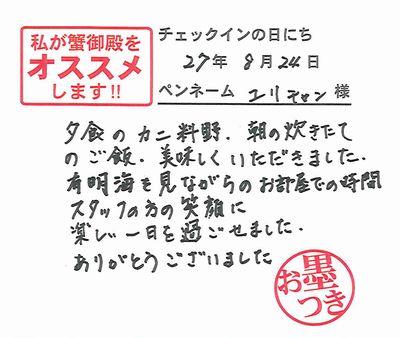 私が蟹御殿を
オススメ
します!!
チェックインの日にち
27年 8月 24日
ペンネーム ユリチャン 様
夕食のカニ料野、朝の炊きたて
のご飯、美味しくいただきました。
有明海を見ながらのお部屋での時間
スタッフの方の笑顔に
楽しい一日を過ごせました。
ありがとうございました
お墨つき